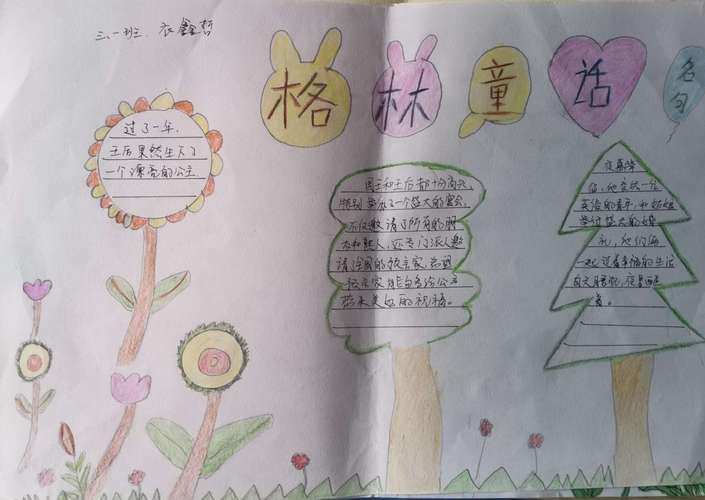 三、一班、衣鑫哲
格林童话
名句
过了一年,
王后果然生下了
一个漂亮的公主.
国王和王后都十分高兴,
特别举办了一个盛大的宴会,
不仅邀请了所有的朋
友和熟人,还专门派人邀
请全国的预言家,希望
预言家能够给公主
带来美好的祝福。
夜幕降
临,他变成一位
英俊的青年,和姑娘
举行盛大的婚
礼,他们俩
一起过着幸福的生活
白天睡觉,夜里
着。